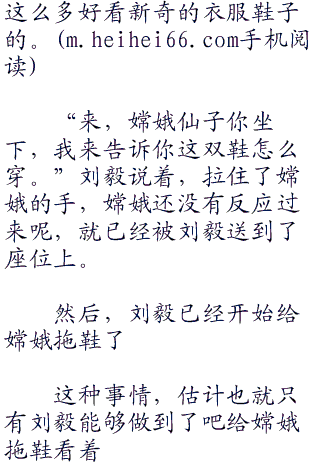 这么多好看新奇的衣服鞋子
的。(m.heihei66.com手机阅
读)
“来，嫦娥仙子你坐
下，我来告诉你这双鞋怎么
穿。”刘毅说着，拉住了嫦
娥的手，嫦娥还没有反应过
来呢，就已经被刘毅送到了
座位上。
然后，刘毅已经开始给
嫦娥拖鞋了
这种事情，估计也就只
有刘毅能够做到了吧给嫦娥
拖鞋看着